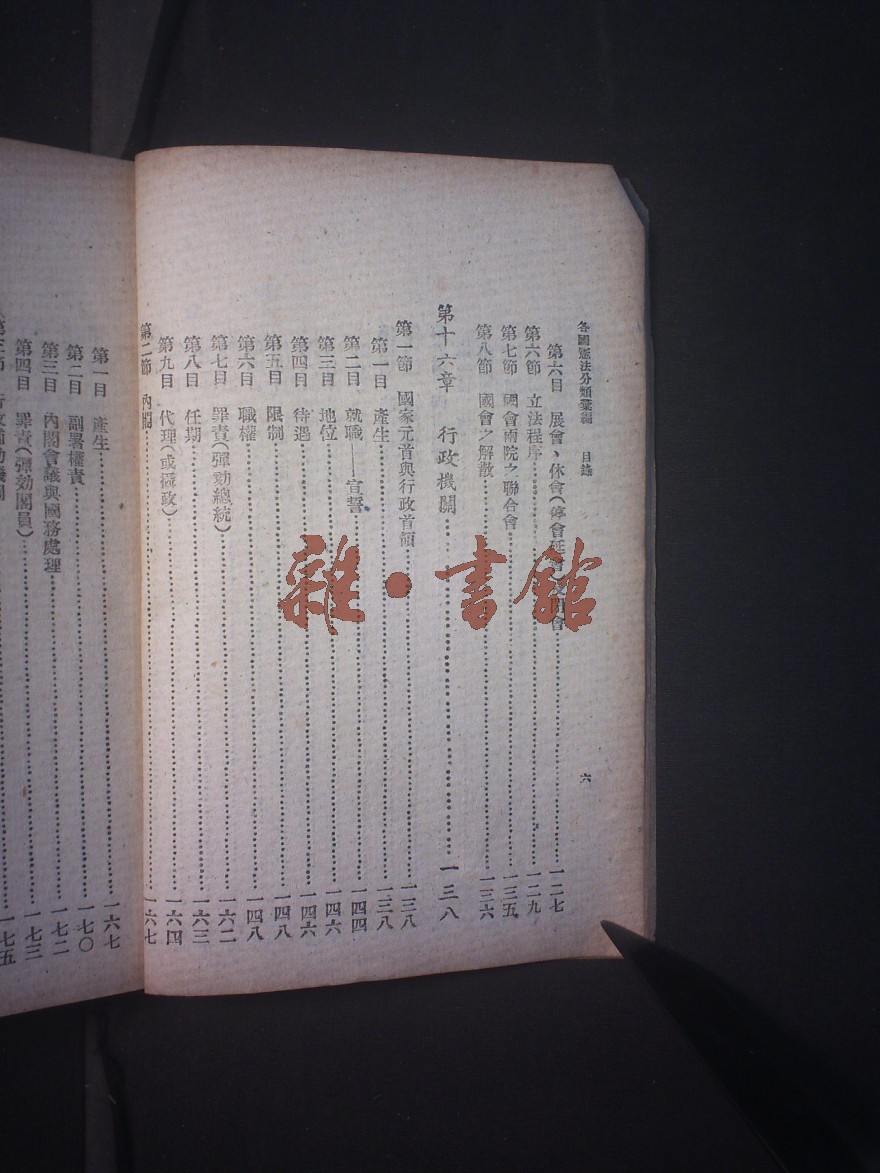 各國憲法分類彙編　目錄　六
第六目　展會、休會(停會延會)及閉會……一二七
第六節　立法程序……一二九
第七節　國會兩院之聯合會……一三五
第八節　國會之解散……一三六
第十六章　行政機關……一三八
第一節　國家元首與行政首領……一三八
第一目　產生……一三八
第二目　就職——宣誓……一四四
第三目　地位……一四六
第四目　待遇……一四六
第五目　限制……一四八
第六目　職權……一四八
第七目　罪責(彈劾總統)……一六二
第八目　任期……一六三
第九目　代理(或攝政)……一六四
第二節　內閣……一六七
第一目　產生……一六七
第二目　副署權責……一七〇
第三目　內閣會議與國務處理……一七二
第四目　罪責(彈劾閣員)……一七三
一七五
雜·書館